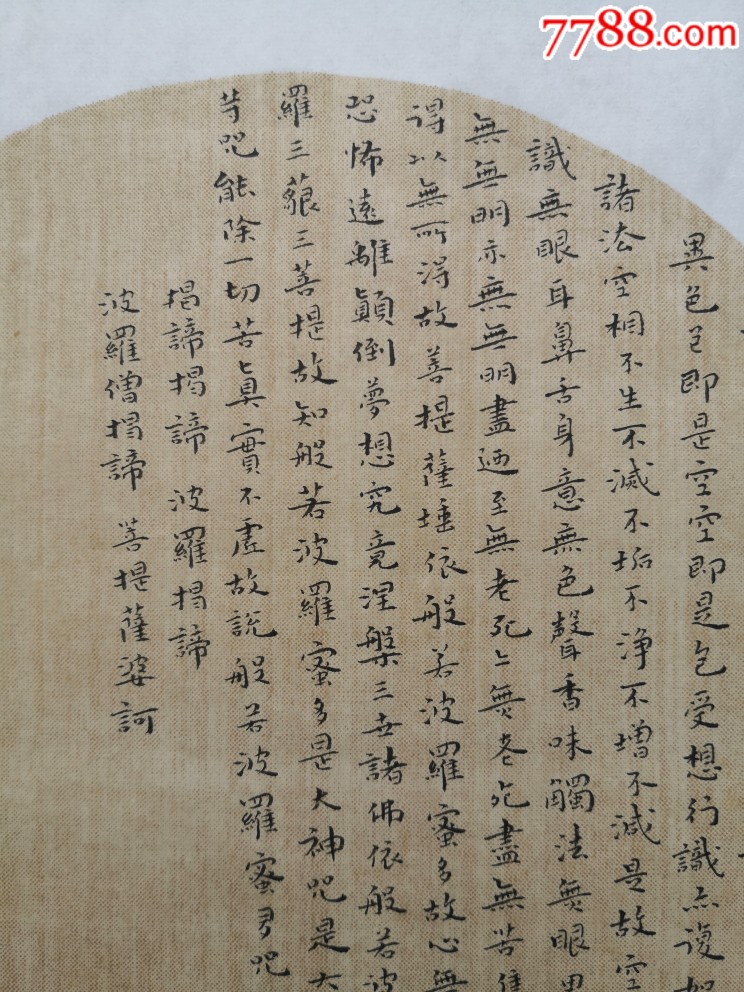 7788.com
異色色即是空空即是色受想行識亦復如
諸法空相不生不滅不垢不淨不增不減是故空
識無眼耳鼻舌身意無色聲香味觸法無眼界
無無明亦無無明盡迺至無老死亦無老死盡無苦集
得以無所得故菩提薩埵依般若波羅蜜多故心無
恐怖遠離顛倒夢想究竟涅槃三世諸佛依般若波
羅三藐三菩提故知般若波羅蜜多是大神咒是大
等咒能除一切苦真實不虛故說般若波羅蜜多咒
揭諦揭諦 波羅揭諦
波羅僧揭諦 菩提薩婆訶